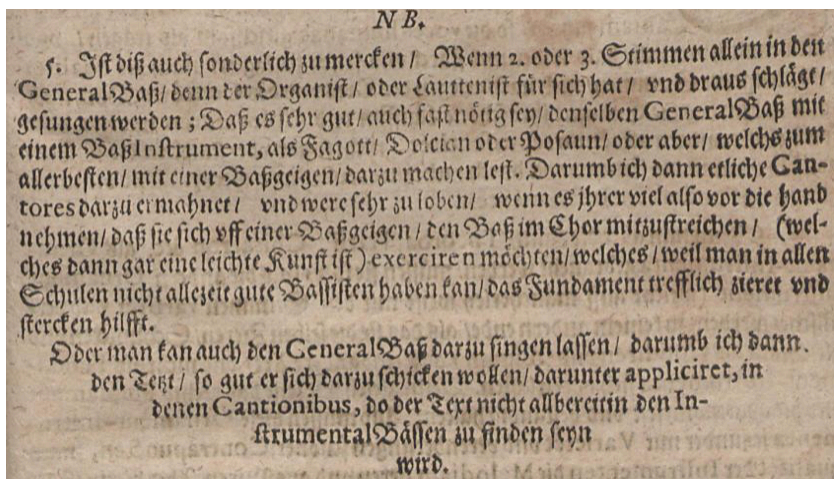 NB.
5. Ist diß auch sonderlich zu mercken / Wenn 2. oder 3. Stimmen allein in den
General Baß / denn der Organist / oder Lauttenist für sich hat / vnd draus schlägt /
gesungen werden ; Daß es sehr gut / auch fast nötig sey / denselben General Baß mit
einem Baß Instrument, als Fagott / Dolcian oder Posaun / oder aber / welchs zum
allerbesten / mit einer Baßgeigen / darzu machen lest. Darumb ich dann etliche Can-
tores darzu ermahnet / vnd were sehr zu loben / wenn es jhrer viel also vor die hand
nehmen / daß sie sich vff einer Baßgeigen / den Baß im Chor mitzustreichen / (wel-
ches dann gar eine leichte Kunst ist) exerciren möchten / welches / weil man in allen
Schulen nicht allezeit gute Bassisten haben kan / das Fundament trefflich zieret vnd
stercken hilfft.
Oder man kan auch den General Baß darzu singen lassen / darumb ich dann.
den Text / so gut er sich darzu schicken wollen / darunter appliciret, in
denen Cantionibus, do der Text nicht allbereit in den In-
strumental Bässen zu finden seyn
wird.